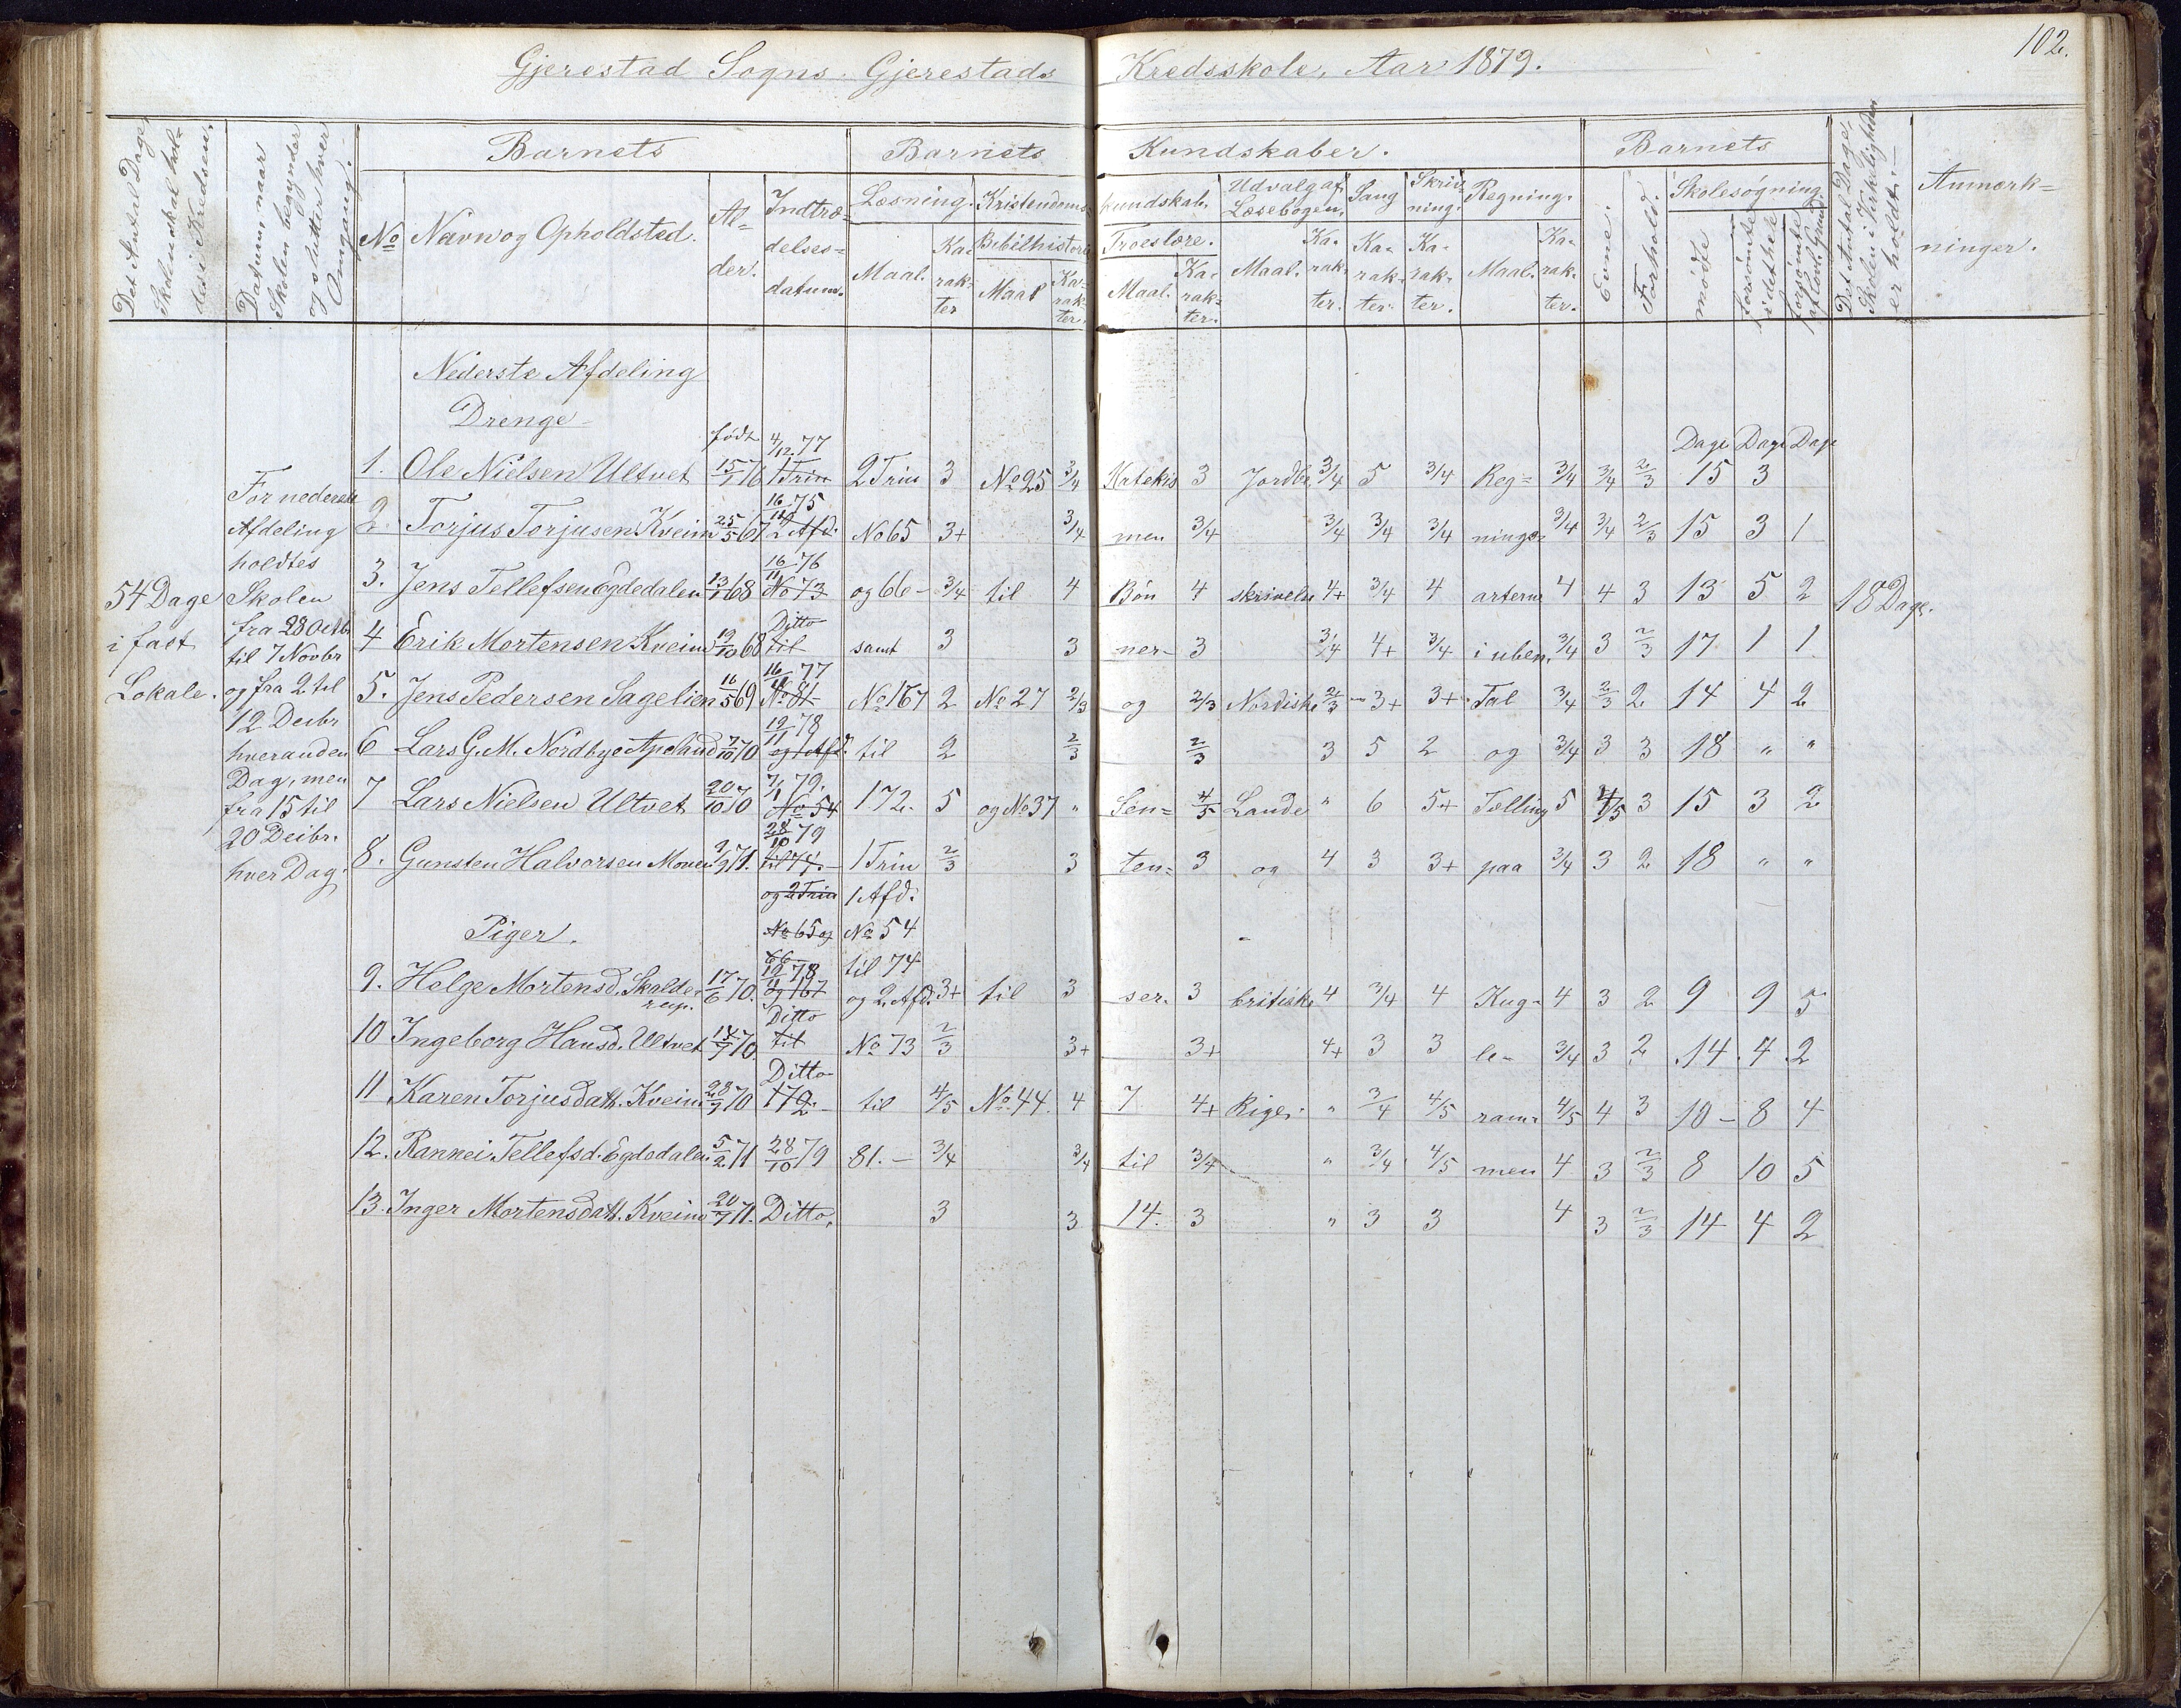 102.
Gjerestad Sogns Gjerestads Kredsskole, Aar 1879.
Det Antal Dage, Skolen skal holdes i Kredsen.
Datum, naar Skolen begynder og slutter hver Omgang.
Barnets
No
Navn og Opholdsted.
Alder.
Indtrædelsesdatum.
Barnets Kundskaber.
Læsning.
Maal. Karakter
Kristendomskundskab.
Bibelhistorie
Maal Karakter.
Troeslære.
Maal. Karakter.
Udvalg af Læsebogen.
Maal. Karakter.
Sang
Karakter.
Skrivning.
Karakter.
Regning.
Maal. Karakter.
Barnets
Evne.
Forhold.
Skolesøgning
mødte
forsømte i det hele
forsømte af lovl. Grund
Det Antal Dage, Skolen i Virkeligheden er holdt.
Anmærkninger.
54 Dage
i fast
Lokale.
For nederste
Afdeling
holdtes
Skolen
fra 28 Octb
til 7 Novbr
og fra 2 til
12 Decbr
hveranden
Dag, men
fra 15 til
20 Decbr.
hver Dag.
Nederste Afdeling
Drenge
født
Dage Dage Dage
1. Ole Nielsen Ultvet 15/1 76 4/12 77 1 Trin 2 Trin 3 No 25 3/4 Katekis 3 Jordbe 3/4 5 3/4 Reg= 3/4 3/4 2/3 15 3
2. Torjus Torjusen Kveim 25/5 67 16/11 75 2 Afd: No 65 3+ 3/4 men 3/4 3/4 3/4 3/4 nings= 3/4 3/4 2/3 15 3 1
3. Jens Tellefsen Egdedalen 13/1 68 16/11 76 No 73 og 66 - 3/4 til 4 Bøn 4 skrivelse 4+ 3/4 4 arterne 4 4 3 13 5 2 18 Dage.
4 Erik Mortensen Kveim 19/10 68 Ditto til samt 3 3 ner- 3 3/4 4+ 3/4 i uben. 3/4 3 2/3 17 1 1
5. Jens Pedersen Sagelien 16/5 69 16/11 77 No 81 No 167 2 No 27 2/3 og 2/3 Nordiske 2/3 3+ 3+ Tal 3/4 2/3 2 14 4 2
6 Lars G. M. Nordbye Apeland 7/10 70 19/11 78 og 1 Afd. til 2 2/3 2/3 3 5 2 og 3/4 3 3 18 " "
7 Lars Nielsen Ultvet 20/10 70 7/1 79. No 54 172. 5 og No 37 " Sen= 4/5 Lande " 6 5+ Tælling 5 4/5 3 15 3 2
8. Gunsten Halvorsen Moen 9/9 71. 28/10 79 til 74. 1 Trin 2/3 3 ten= 3 og 4 3 3+ paa 3/4 3 2 18 " "
og 2 Trin 1 Afd:
Piger. No 65 og No 54
66 til 74
9. Helge Mortensd. Skalderup. 17/6 70. 19/11 78 og 167 og 2 Afd. 3+ til 3 ser. 3 britiske 4 3/4 4 Kug- 4 3 2 9 9 5
10 Ingeborg Hansd. Ultvet 18/7 70. Ditto til No 73 2/3 3+ 3+ 4+ 3 3 le- 3/4 3 2 14 4 2
11 Karen Torjusdatt. Kveim 28/9 70 Ditto 172. til 4/5 No 44. 4 7 4+ Riger. " 3/4 4/5 ram= 4/5 4 3 10 - 8 4
12. Rannei Tellefsd. Egdedalen 5/2 71 28/10 79 81. - 3/4 3/4 til 3/4 " 3/4 4/5 men 4 3 2/3 8 10 5
13. Inger Mortensdatt. Kveim 20/7 71. Ditto, 3 3 14. 3 " 3 3 4 3 2/3 14 4 2